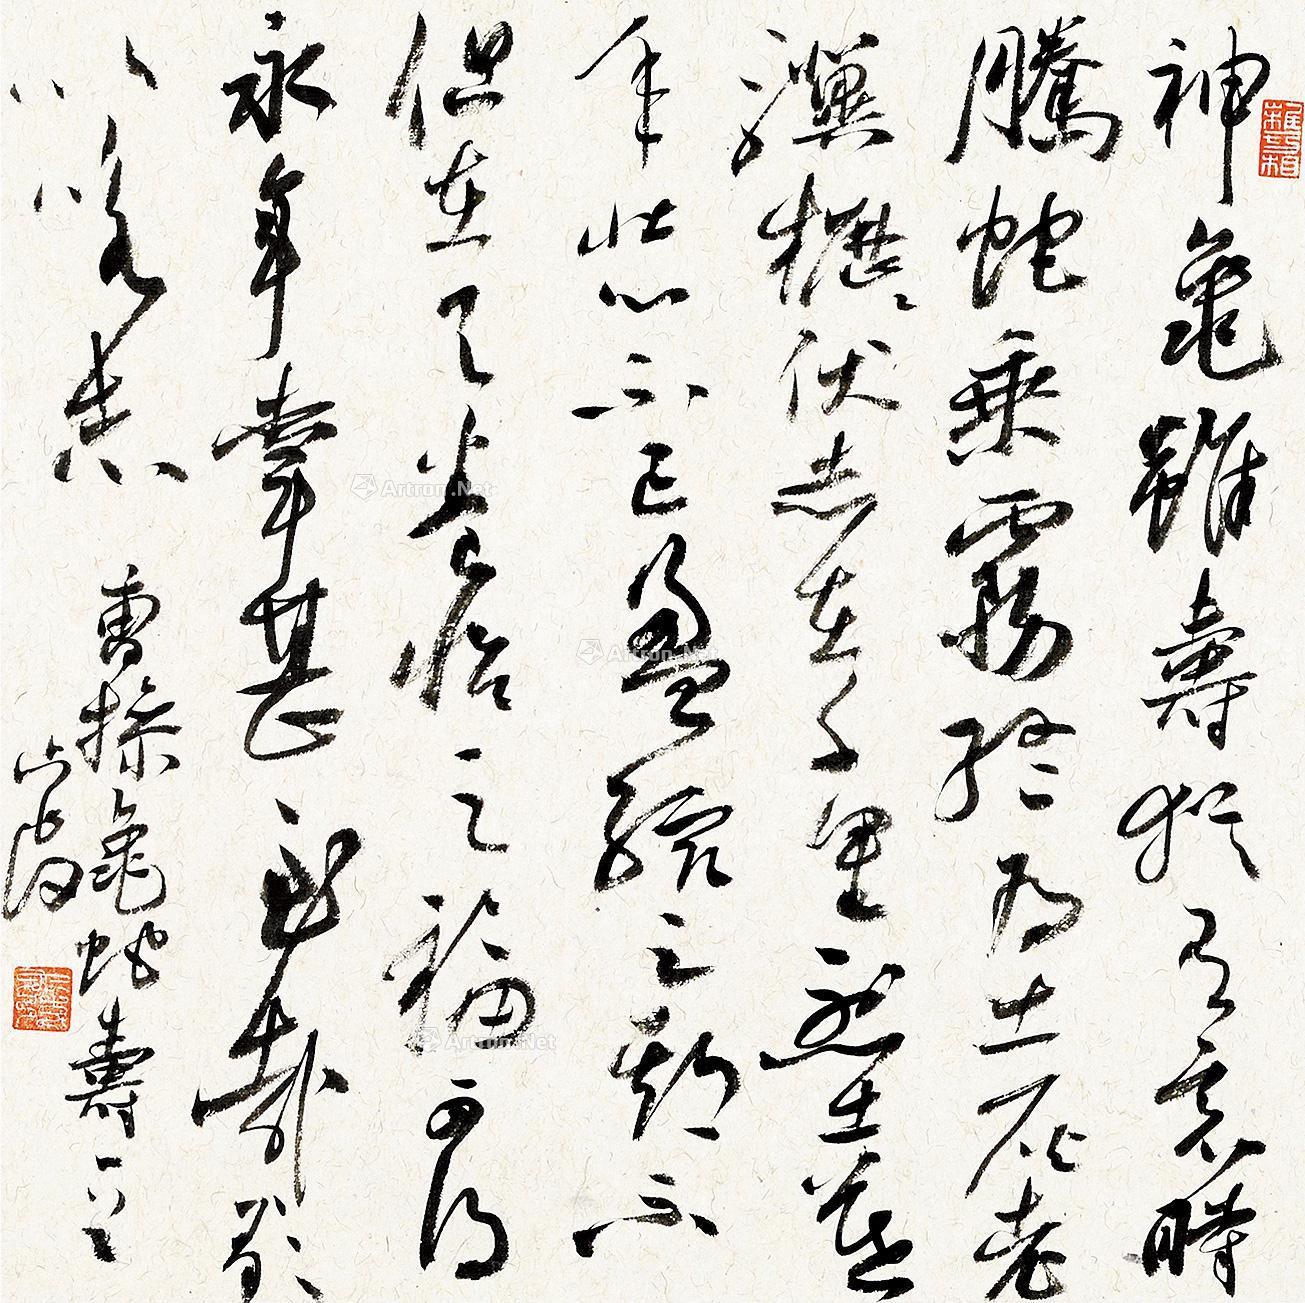 神龜雖壽猶有竟時
騰蛇乘霧終為土灰老
驥櫪伏志在千里烈士暮
年壯心不已盈縮之期不
但在天養怡之福可得
永年幸甚至哉歌
以詠志
曹操龜蛇壽一
Artron.Net
Artron.Net
Artron.Net